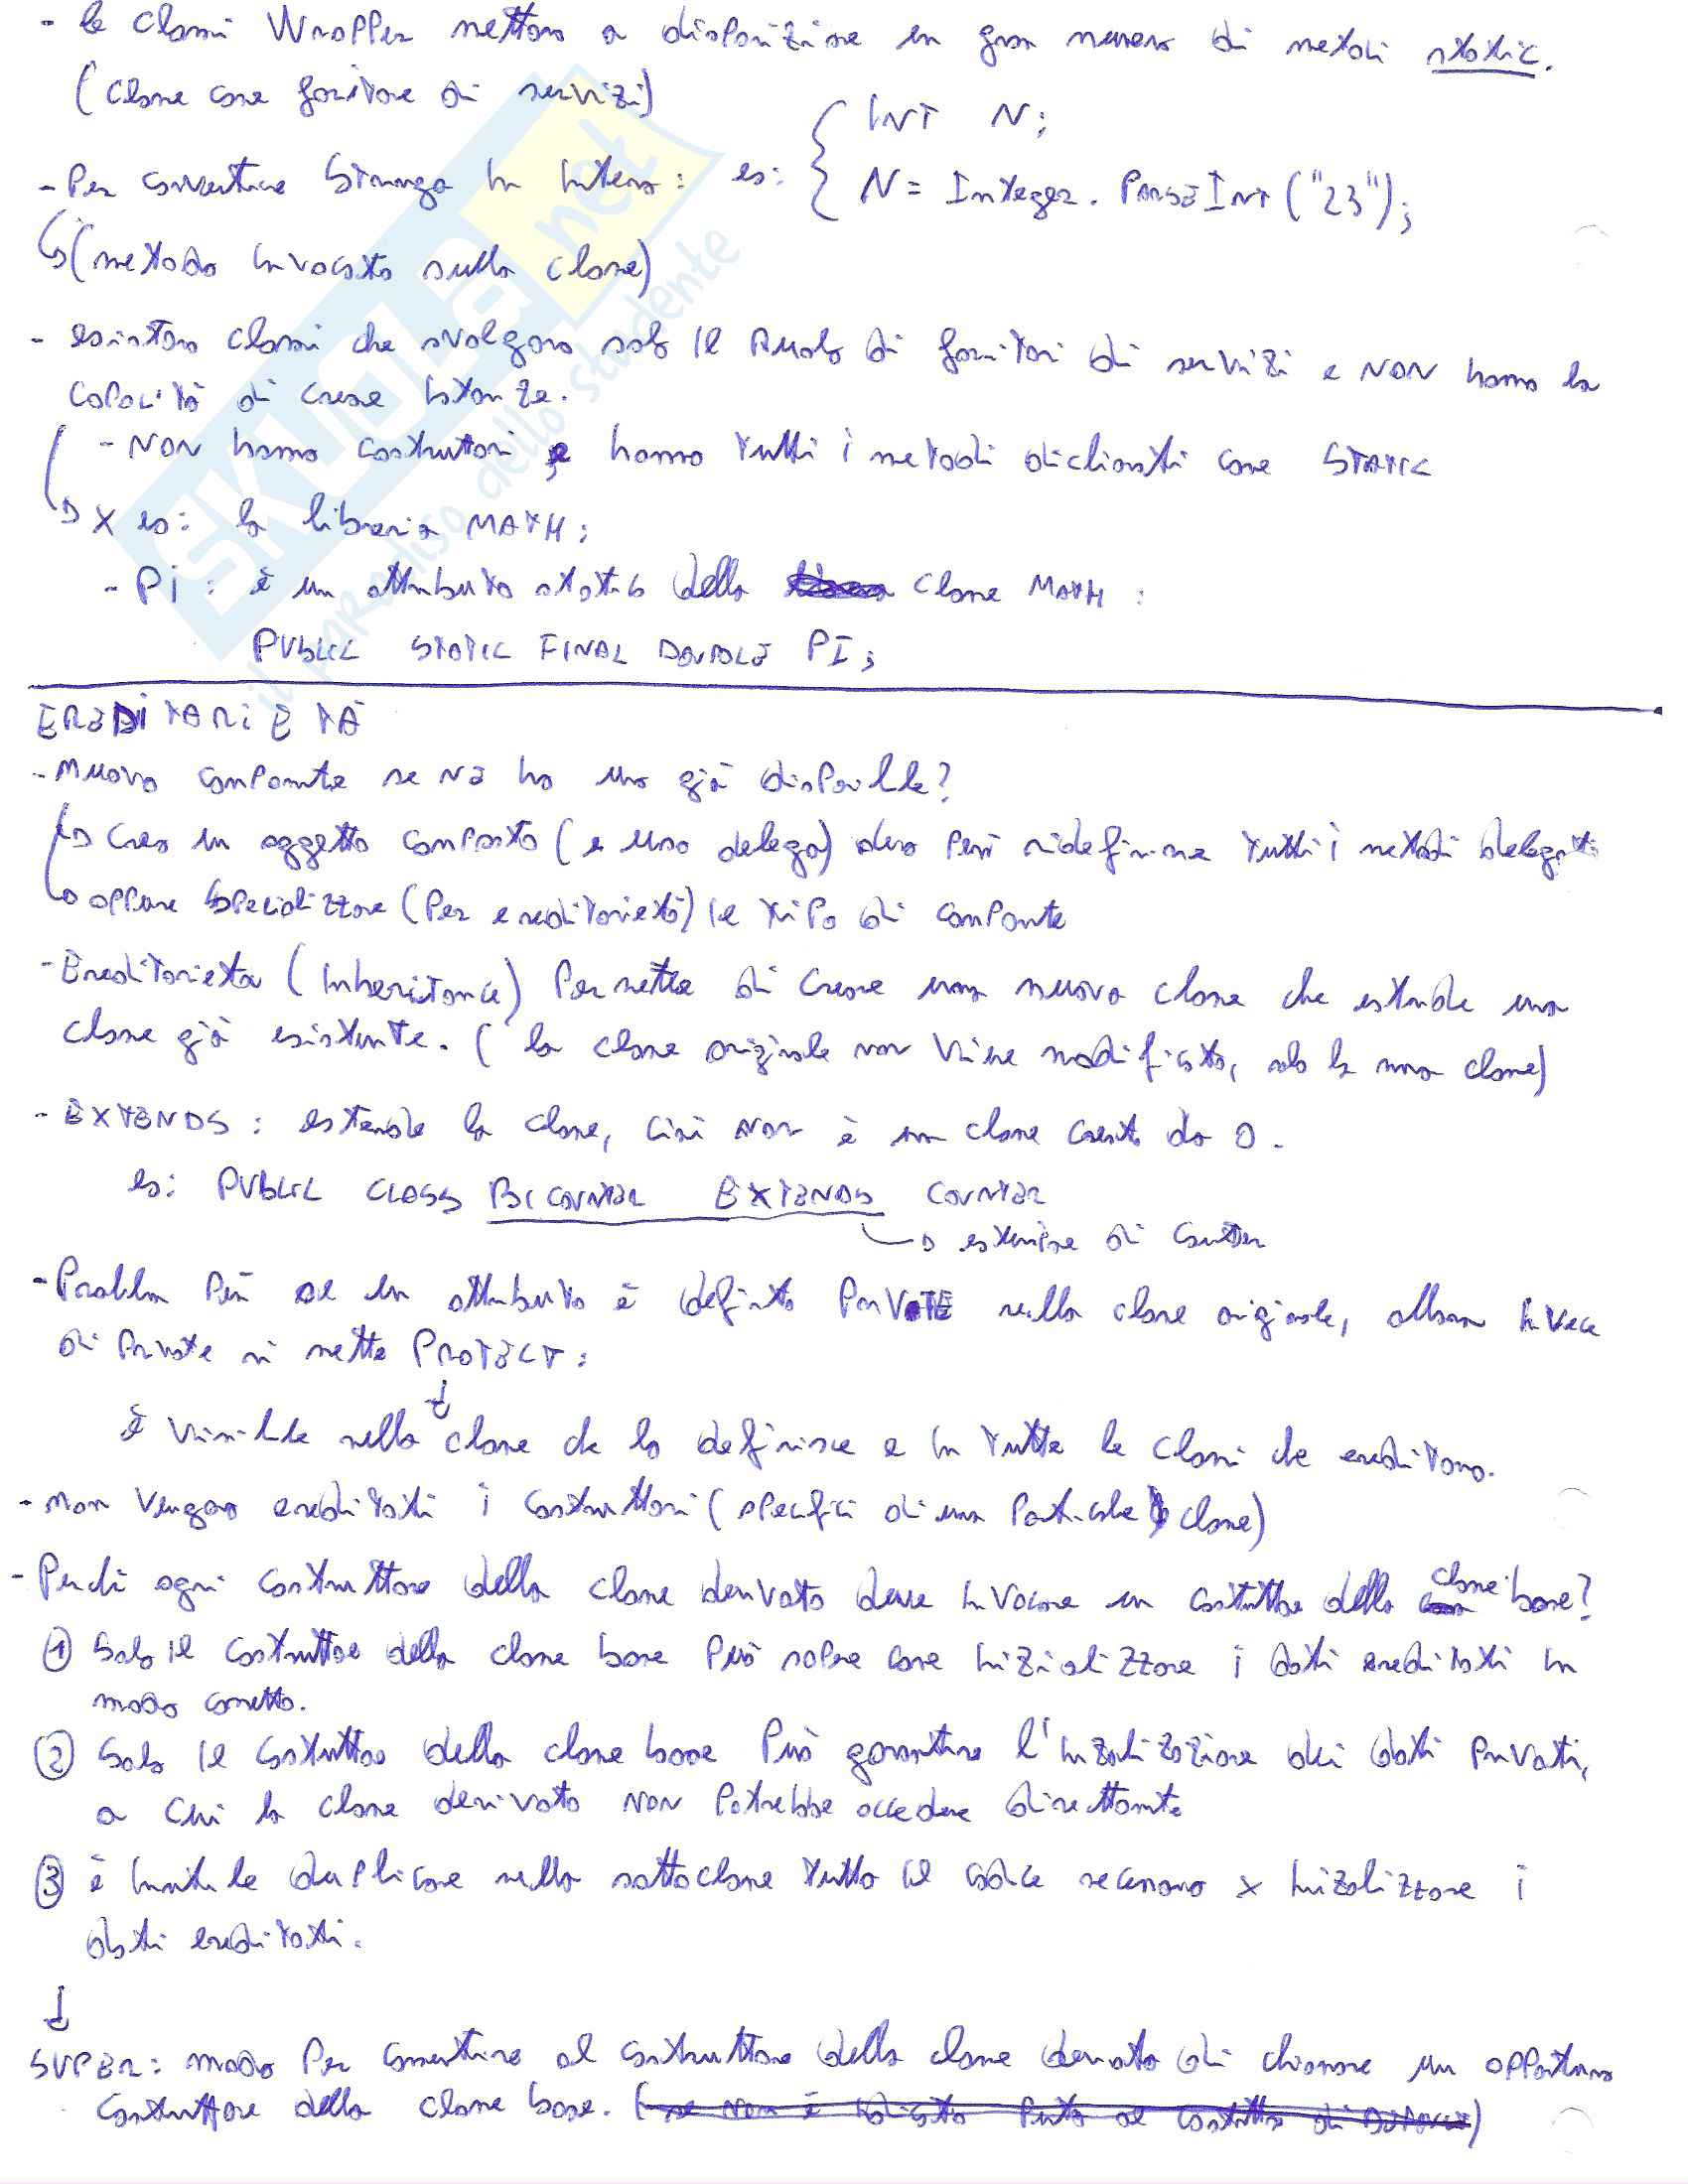 - le classi Wrapper mettono a disposizione un gran numero di metodi static.
(classe come fornitore di servizi)
- Per convertire stringa in intero: es: { INT N;
N = Integer.PARSEINT("23");
↳ (metodo invocato sulla classe)
- esistono classi che svolgono solo il ruolo di fornitori di servizi e NON hanno la
capacità di creare istanze.
- NON hanno costruttori e hanno tutti i metodi dichiarati come STATIC
→ x es: la libreria MATH;
- PI: è un attributo static della classe MATH:
PUBLIC STATIC FINAL DOUBLE PI;
EREDITARIETÀ
- Nuovo componente se ne ho uno già disponibile?
→ Creo un oggetto composto (e uso delega) devo però ridefinire tutti i metodi delegati
→ oppure specializzare (per ereditarietà) il tipo di componente
- Ereditarietà (Inheritance) Permette di creare una nuova classe che estende una
classe già esistente. (la classe originale non viene modificata, solo la nuova classe)
- EXTENDS: estende la classe, così non è una classe creata da 0.
es: PUBLIC CLASS BICOUNTER EXTENDS COUNTER
→ estensione di Counter
- Problema però se un attributo è definito PRIVATE nella classe originale, allora invece
di private si mette PROTECT:
↓
è visibile nella classe che lo definisce e in tutte le classi che ereditano.
- non vengono ereditati i costruttori (specifici di una particolare classe)
- Perché ogni costruttore della classe derivata deve invocare un costruttore della classe base?
① Solo il costruttore della classe base può sapere come inizializzare i dati ereditati in
modo corretto.
② Solo il costruttore della classe base può garantire l'inizializzazione dei dati privati,
a cui la classe derivata non potrebbe accedere direttamente
③ è inutile duplicare nella sottoclasse tutto il codice necessario x inizializzare i
dati ereditati.
↓
SUPER: modo per consentire al costruttore della classe derivata di chiamare un opportuno
costruttore della classe base. (se non è indicato punta al costruttore di DEFAULT)
SKUOLA.net
il paradiso dello studente